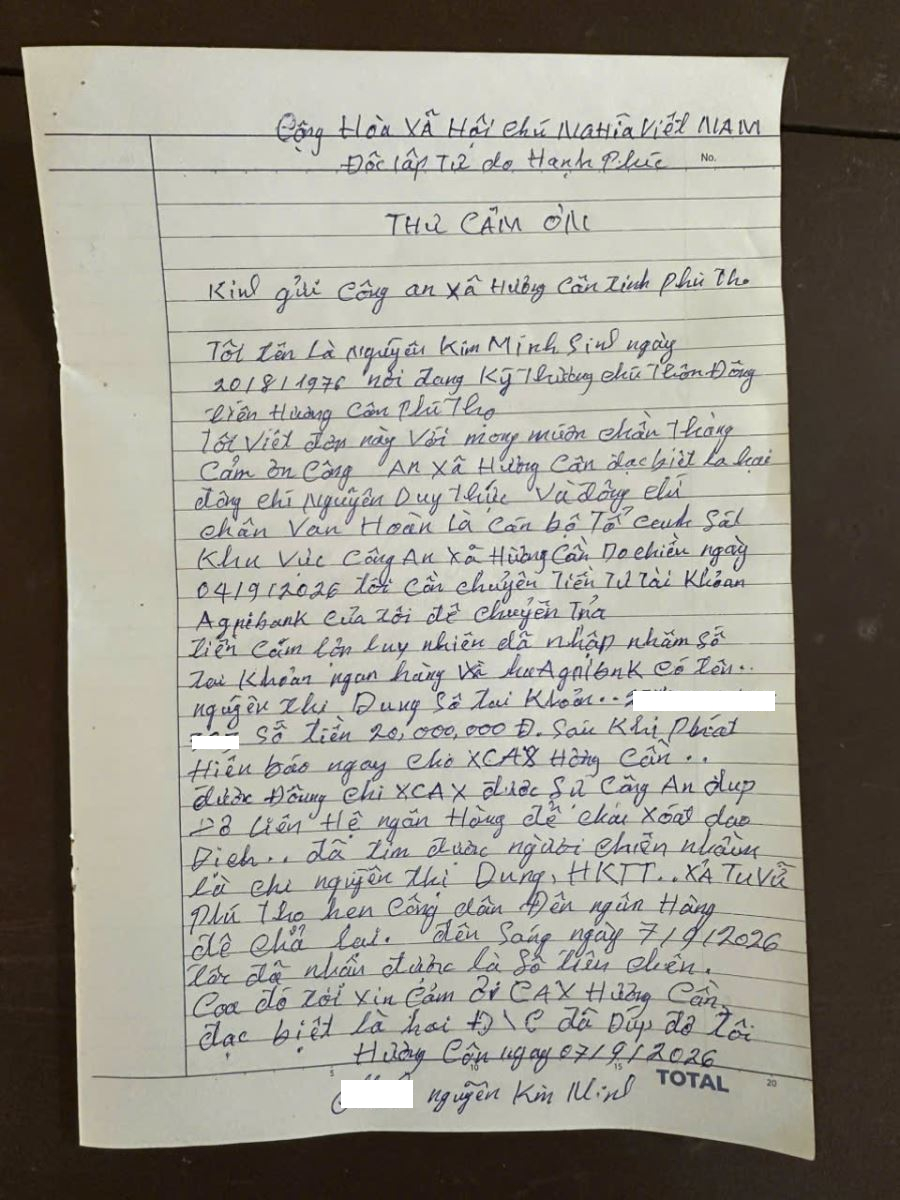 Cộng Hòa XÃ Hội chủ NGHĨa Việt NAM
Độc lập Tự do Hạnh Phúc
No.
THƯ CẢM ƠN
Kinh gửi Công an xã Hương Cần tỉnh Phú Thọ
Tôi tên là Nguyễn Kim Minh Sinh ngày
20/8/1976 nơi đang Ký Thường chú Thôn Đồng
tiến Hương Cần Phú Thọ
Tôi Viết đơn này Với mong muốn chân Thàng
Cảm ơn Công An xã Hương Cần đặc biệt là hai
đồng chí Nguyễn Duy Thức Và đồng chí
chần Văn Hoàn là Cán bộ Tổ Cảnh Sát
Khu Vực Công An Xã Hương Cần Do chiều ngày
04/9/2026 tôi Cần chuyển Tiền Từ Tài Khoản
Agribank của tôi để chuyển Trả
tiền tuy nhiên đã nhập nhầm Số
tai Khoản ngan hàng Có tên..
nguyễn thị Dung Số tai Khoản..
Số tiền 20,000,000 Đ. Sau Khi Phát
Hiện báo ngay cho XCAX Hương Cần..
được Đồng Chí XCAX được Sự Công An dup
đỡ liên Hệ ngân Hàng để chái Xoát dao
Dịch.. đã tìm được người chiền nhầm
là chi nguyễn thị Dung, HKTT.. XÃ TU VŨ
Phú Thọ hẹn Công dân Đến ngân Hàng
để chả lại. đến Sáng ngày 7/9/2026
tôi đã nhấn được là Số tiền chên.
Coa đó tôi xin Cảm ơi CAX Hương Cần
đặc biệt là hai Đ\C đã Dúp đỡ Tôi
Hương Cần ngay 07/9/2026
5 10 15 TOTAL 20
nguyễn Kim Minh